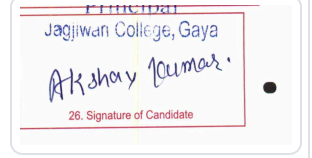 Principal
Jagjiwan College, Gaya
Akshay Kumar.
26. Signature of Candidate